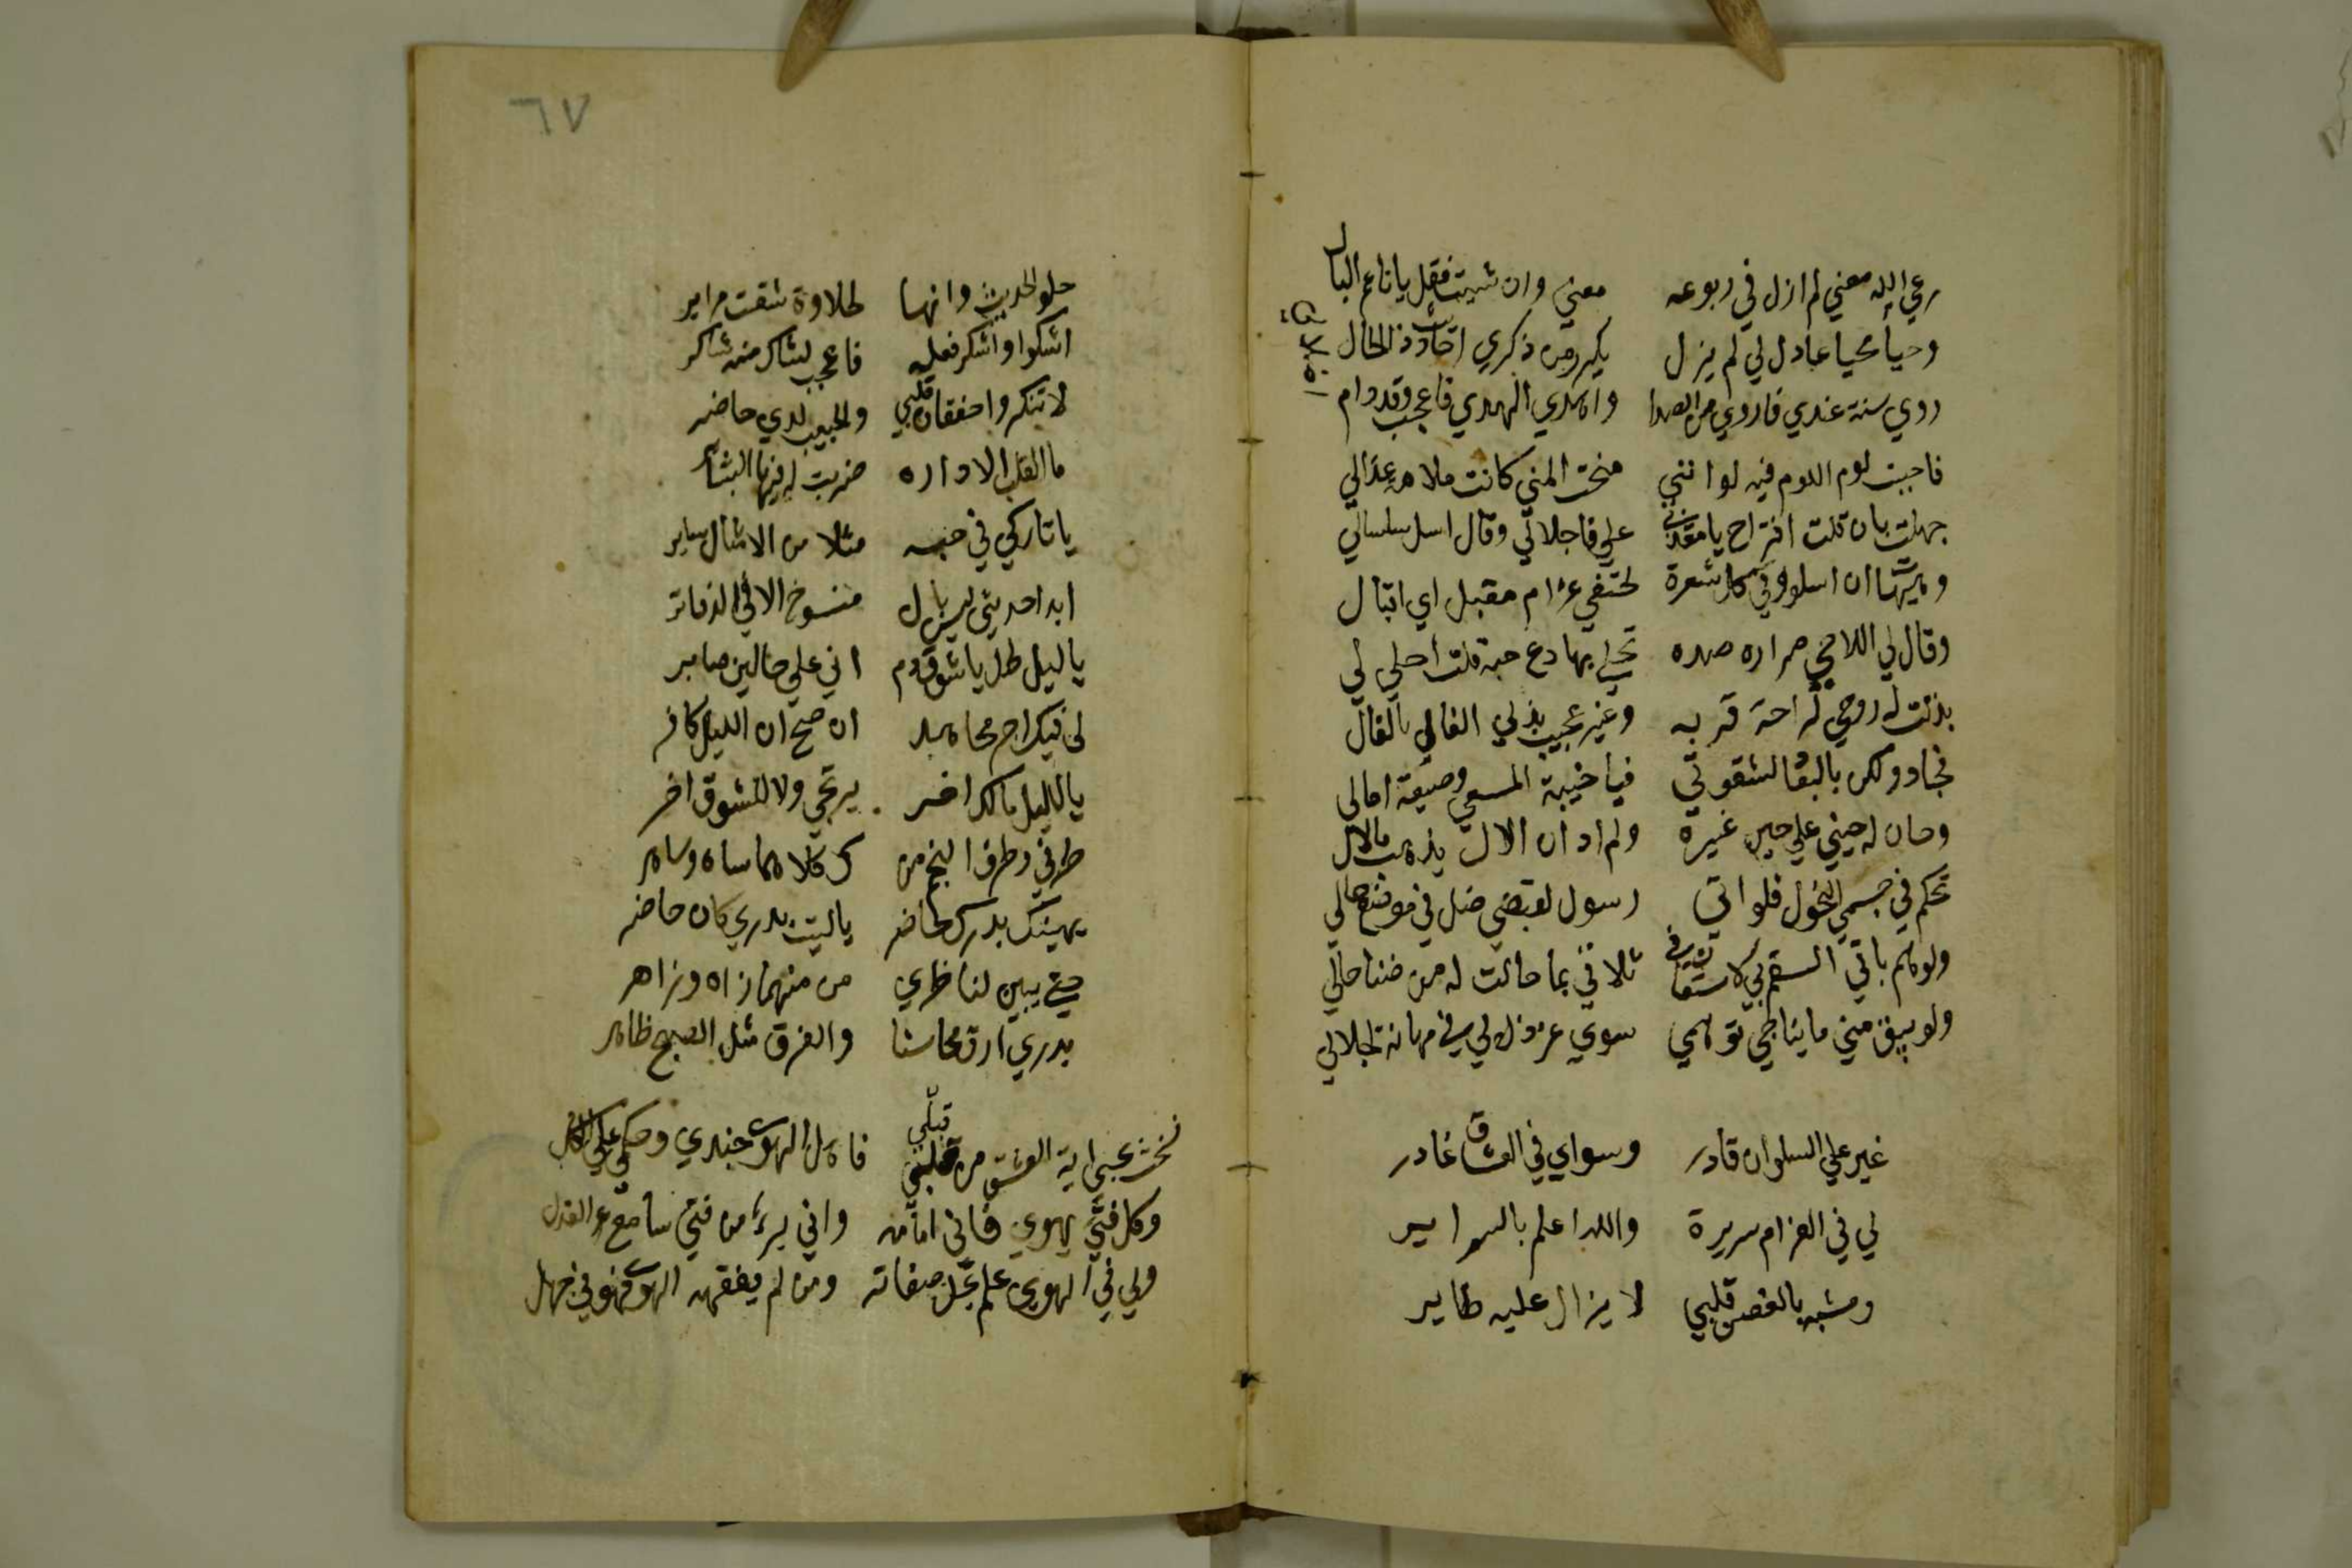 رعي الله مغني لم ازل في ربوعه معني وان شيت فقل يا ناعم البال
وحيا محيا عاذل لي لم يزل يكرر من ذكري احاديث ذا الخال
روي سنة عندي فاروي من الصدا واهدي الهدي فاعجب وقد رام
فاحببت لوم اللوم فيه لو انني منحت المني كانت علامة عذالي
جهلت بان قلت اقترح يا معذبي علي فاجلاني وقال اسل سلسالي
وهيهات ان اسلو وفي كل شعرة لحتفي غرام مقبل اي اقبال
وقال لي اللاحي مرارة صده تحلي بها دع حبه قلت احلي لي
بذلت له روحي لراحة قربه وغير عجيب بذلي الغالي بالغال
فجاد ولكن بالبعاد لشقوتي فيا خيبة المسعي وضيعة امالي
وحان له حيني علي حين غيره ولم ادر ان الال يذهب بالال
تحكم في جسمي النحول فلو اتي رسول لقبضي ضل في موضع خالي
ولو هم باقي السقم بي لاستعان في تلافي بما حالت له من ضنا حالي
ولم يبق مني ما يناجي توهمي سوي عز ذل لي في مهانة اجلالي
غيري علي السلوان قادر وسواي في العشاق غادر
لي في الغرام سريرة والله اعلم بالسراير
ومشبه بالغصن قلبي لا يزال عليه طاير
٦٧
حلو الحديث وانها لحلاوة شقت مراير
اشكوا واشكر فعله فاعجب لشاك منه شاكر
لا تنكروا خفقان قلبي والحبيب لدي حاضر
ما القلب الا داره ضربت له فيها البشاير
يا تاركي في حبه مثلا من الامثال ساير
ابدا حديثي ليس بال منسوخ الا في الدفاتر
يا ليل طل يا شوق دم اني علي حالين صابر
لي فيك اجر مجاهد ان صح ان الليل كافر
يا ليل مالك اخر يرتجي ولا للشوق اخر
طرفي وطرف النجم من ك كلاهما ساه وساهر
يهنيك بدرك حاضر يا ليت بدري كان حاضر
حتي يبين لناظري من منهما زاه وزاهر
بدري ارق محاسنا والفرق مثل الصبح ظاهر
نسخت بحبي اية العشق من قبلي فاهل الهوي جندي وحكمي علي الكل
وكل فتي يهوي فاني امامه واني بريء من فتي سامع العذل
ولي في الهوي علم تجل صفاته ومن لم يفقهه الهوي فهو في جهل